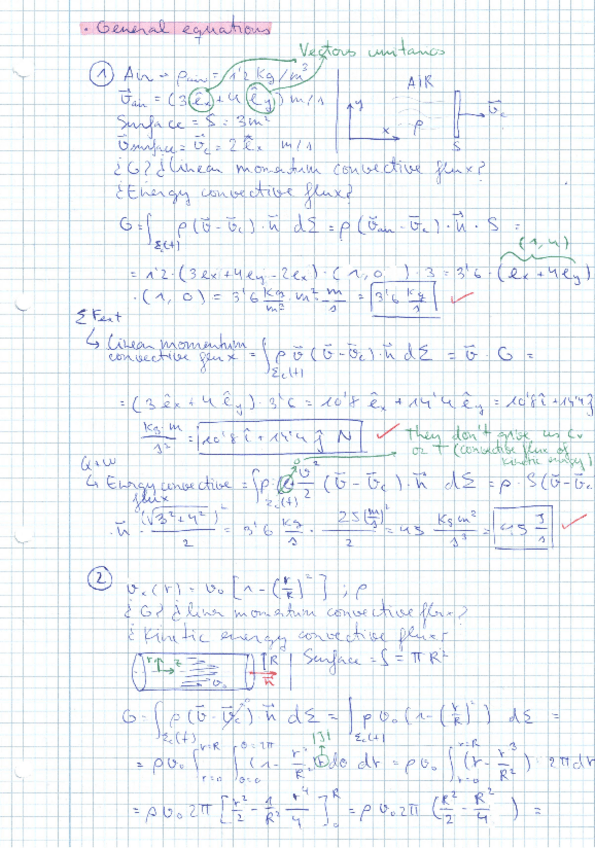 · General equations
Vectors unitarios
① Air → ρair = 1'2 Kg/m³
v̄air = (3 êx + 4 êy) m/s
AIR
Surface = S = 3m²
y
v̄c
v̄surface = v̄c = 2 êx m/s
x
ρ
S
¿G? ¿Linear momentum convective flux?
¿Energy convective flux?
G = ∫Σc(t) ρ (v̄ - v̄c) · n̄ dΣ = ρ (v̄air - v̄c) · n̄ · S =
(1, 4)
= 1'2 · (3ex + 4ey - 2ex) · (1, 0) · 3 = 3'6 · (ex + 4ey)
· (1, 0) = 3'6 Kg/m³ · m² · m/s = 3'6 Kg/s ✓
Σ Fext
↳ Linear momentum convective flux = ∫Σc(t) ρ v̄ (v̄ - v̄c) · n̄ dΣ = v̄ · G =
= (3 êx + 4 êy) · 3'6 = 10'8 êx + 14'4 êy = 10'8 î + 14'4 ĵ
Kg·m/s² = 10'8 î + 14'4 ĵ N ✓
They don't give us Cv
or T (convective flux of
kinetic energy)
Q+W
↳ Energy convective flux = ∫Σc(t) ρ · v²/2 (v̄ - v̄c) · n̄ dΣ = ρ · S (v̄ - v̄c
· n̄ · (√3²+4²)²/2 = 3'6 Kg/s · 25 (m/s)²/2 = 45 Kg m²/s³ = 45 J/s ✓
② vx (r) = v0 [1 - (r/R)²] ; ρ
¿G? ¿linear momentum convective flux?
¿Kinetic energy convective flux?
r z v0 R n̄ Surface = S = π R²
G = ∫Σc(t) ρ (v̄ - v̄c) · n̄ dΣ = ∫Σc(t) ρ v0 (1 - (r/R)²) dΣ =
|J|
= ρ v0 ∫r=0 r=R ∫θ=0 θ=2π (1 - r²/R²) r dθ dr = ρ v0 ∫r=0 r=R (r - r³/R²) · 2π dr
= ρ v0 2π [r²/2 - 1/R² r⁴/4]0 R = ρ v0 2π (R²/2 - R²/4) =